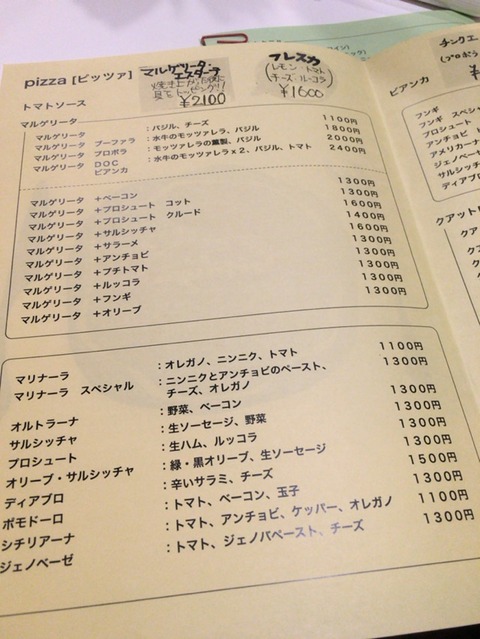 pizza [ピッツァ]
マルゲリータ
エスターテ
¥2100
フレスカ
(レモン・トマト
チーズ・ルーコラ)
¥1600
トマトソース
マルゲリータ
マルゲリータ :バジル、チーズ 1100円
マルゲリータ ブーファラ :水牛のモッツァレラ、バジル 1800円
マルゲリータ プロボラ :モッツァレラの薫製、バジル 2000円
マルゲリータ DOC ビアンカ :水牛のモッツァレラx2、バジル、トマト 2400円
マルゲリータ +ベーコン 1300円
マルゲリータ +プロシュート コット 1300円
マルゲリータ +プロシュート クルード 1600円
マルゲリータ +サルシッチャ 1400円
マルゲリータ +サラーメ 1600円
マルゲリータ +アンチョビ 1300円
マルゲリータ +プチトマト 1300円
マルゲリータ +ルッコラ 1300円
マルゲリータ +フンギ 1300円
マルゲリータ +オリーブ 1300円
マリナーラ :オレガノ、ニンニク、トマト 1100円
マリナーラ スペシャル :ニンニクとアンチョビのペースト、 1300円
チーズ、オレガノ
オルトラーナ :野菜、ベーコン 1300円
サルシッチャ :生ソーセージ、野菜 1300円
プロシュート :生ハム、ルッコラ 1300円
オリーブ・サルシッチャ :緑・黒オリーブ、生ソーセージ 1300円
ディアブロ :辛いサラミ、チーズ 1500円
ポモドーロ :トマト、ベーコン、玉子 1300円
シチリアーナ :トマト、アンチョビ、ケッパー、オレガノ 1100円
ジェノベーゼ :トマト、ジェノバペースト、チーズ 1300円
チンクエ
ビアンカ
フンギ
フンギ スペシャ
プロシュート
アンチョビ ト
アメリカーナ
ジェノベーゼ
サルシッチ
ディアブロ
クアット
クア
クア